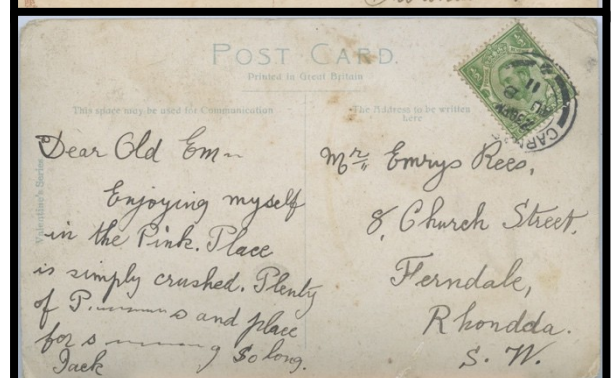 POST CARD.
Printed in Great Britain
This space may be used for Communication
The Address to be written
here
Valentine's Series
Dear Old Em--
Enjoying myself
in the Pink. Place
is simply crushed. Plenty
of P.-------s and place
for s-------g So long.
Jack
Mr. Emrys Rees,
8, Church Street,
Ferndale,
Rhondda.
S. W.